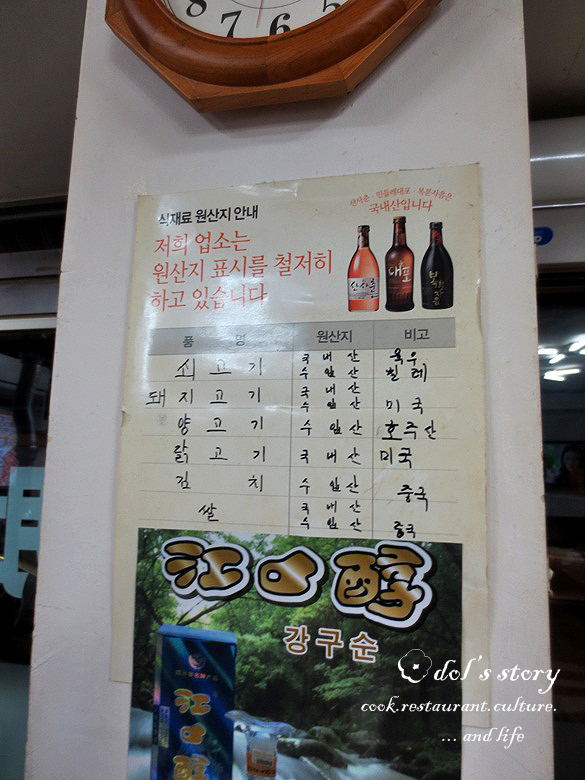 8 7 6 5 4
식재료 원산지 안내
저희 업소는
원산지 표시를 철저히
하고 있습니다
산사춘 · 민들레대포 · 복분자음은
국내산입니다
산사춘
대포
품 명 원산지 비고
쇠 고 기 국 내 산 육우
수 입 산 칠레
돼 지 고 기 국 내 산
수 입 산 미국
양 고 기 수 입 산 호주산
닭 고 기 국 내 산 미국
김 치 수 입 산 중국
쌀 국 내 산
수 입 산 중국
江口醇
강구순
江口醇
dol's story
cook.restaurant.culture.
... and life